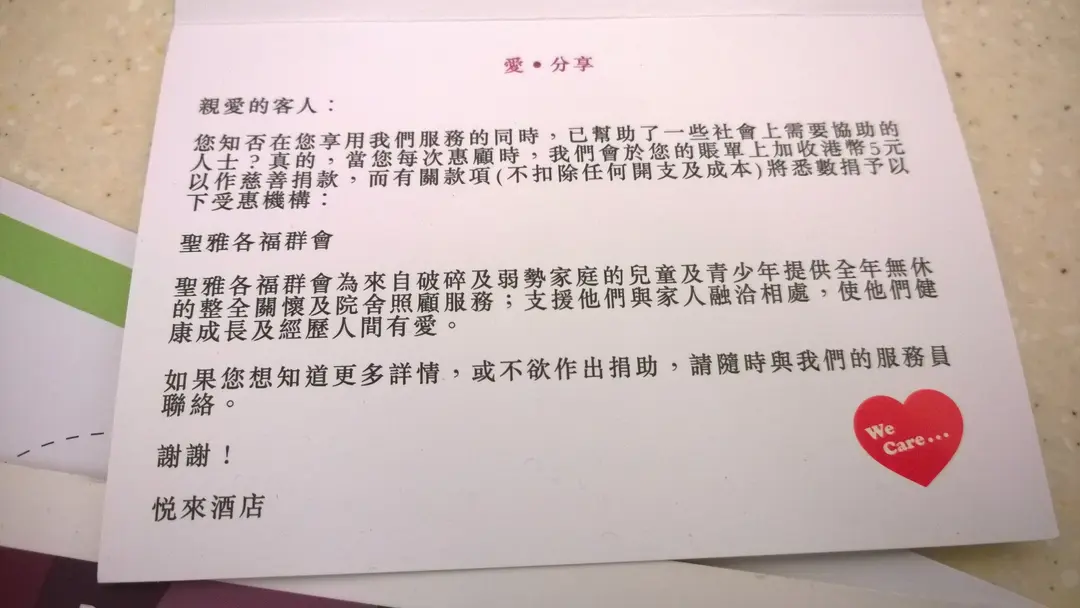 愛•分享
親愛的客人：
您知否在您享用我們服務的同時，已幫助了一些社會上需要協助的
人士？真的，當您每次惠顧時，我們會於您的賬單上加收港幣5元
以作慈善捐款，而有關款項(不扣除任何開支及成本)將悉數捐予以
下受惠機構：
聖雅各福群會
聖雅各福群會為來自破碎及弱勢家庭的兒童及青少年提供全年無休
的整全關懷及院舍照顧服務；支援他們與家人融洽相處，使他們健
康成長及經歷人間有愛。
如果您想知道更多詳情，或不欲作出捐助，請隨時與我們的服務員
聯絡。
We
Care...
謝謝！
悦來酒店